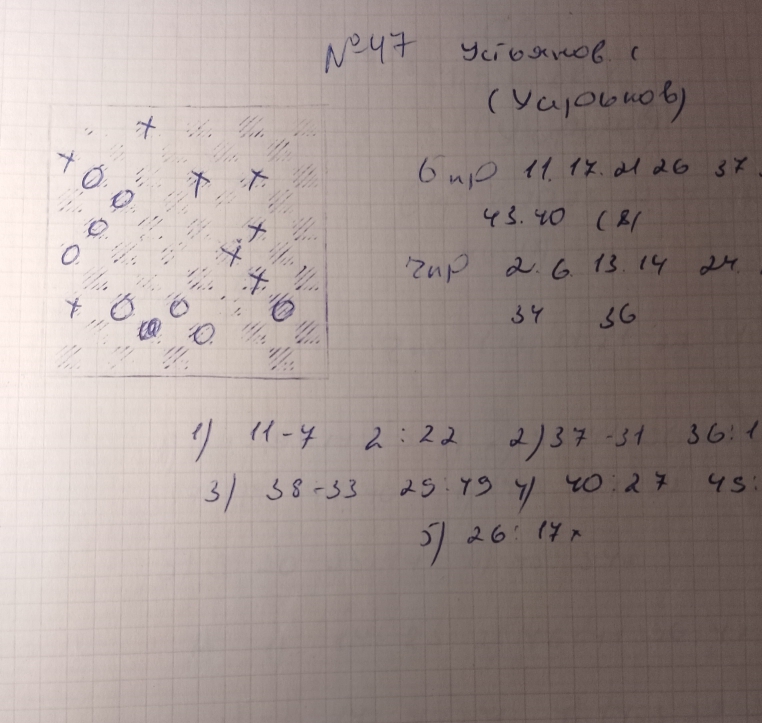 №47 Устьянов (
(Харьков)
б пр 11. 17. 21 26 37
43. 40 (8)
чпр 2. 6. 13. 14 24.
34 36
1) 11-7 2:22 2) 37-31 36:1
3) 38-33 29:49 4) 40:27 49:
5) 26:17x